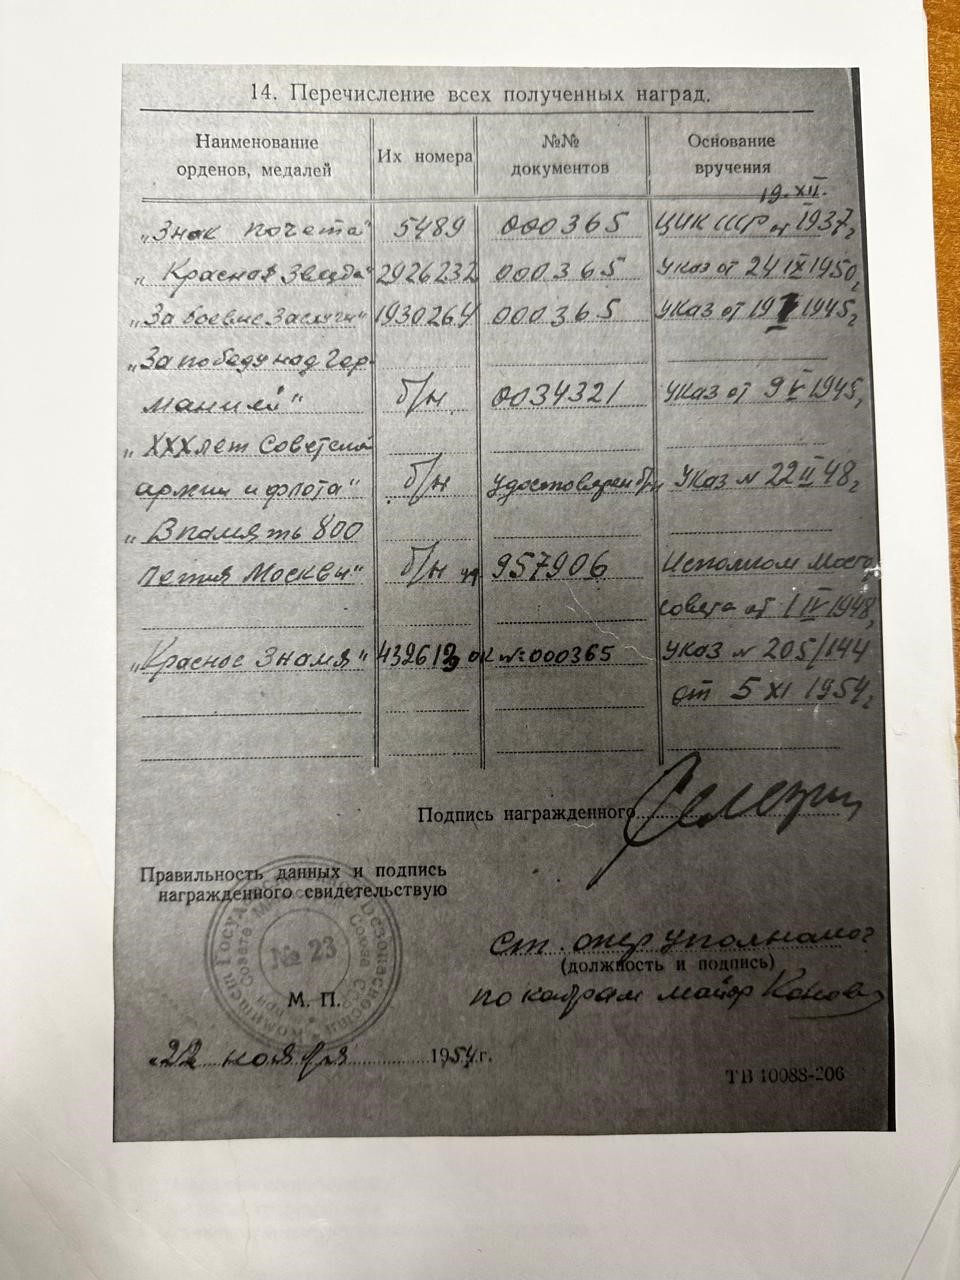 14. Перечисление всех полученных наград.
Наименование орденов, медалей | Их номера | №№ документов | Основание вручения
19. XII.
„Знак почета“ 5489 000365 ЦИК СССР от 1937г
„Красная Звезда“ 2926232 000365 Указ от 24 IX 1950г
„За боевые заслуги“ 1930264 000365 Указ от 19 1945г
„За победу над Гер-
манией“ б/н. 0034321 Указ от 9 V 1945г
„XXX лет Советской
армии и флота“ б/н удостоверен б/н Указ № 22 II 48г
„В память 800
летия Москвы“ б/н 957906 Исполком Мосго
совета от 1 IV 1948г
„Красное Знамя“ ок №000365 Указ № 205/144
от 5 XI 1954г
Подпись награжденного
Правильность данных и подпись
награжденного свидетельствую
№ 23
ст. опер уполномоч
(должность и подпись)
М. П.
по кадрам майор
„22 ноября 1954г.
ТВ 10088-206